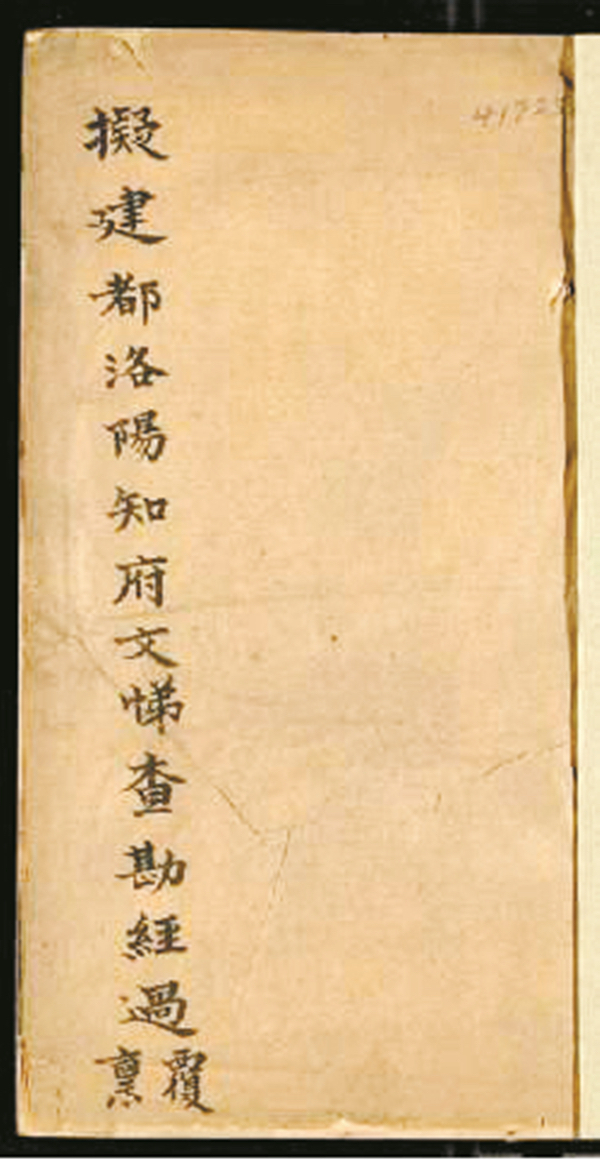 擬建都洛陽知府文悌查勘經過覆稟